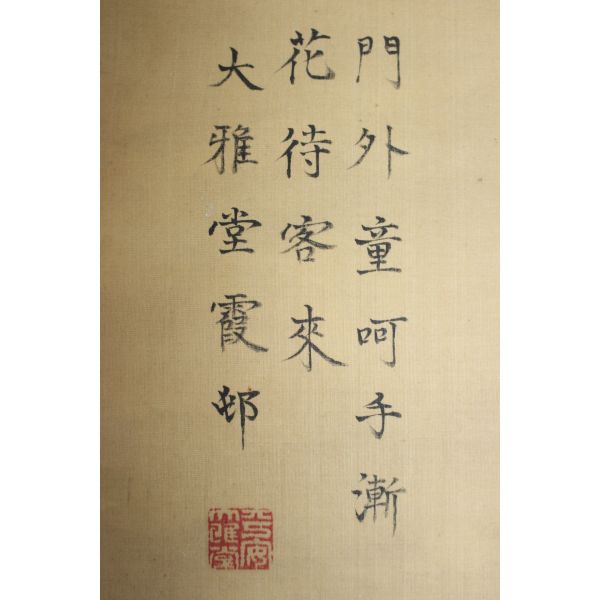 門外童呵手漸
花待客來
大雅堂霞邨